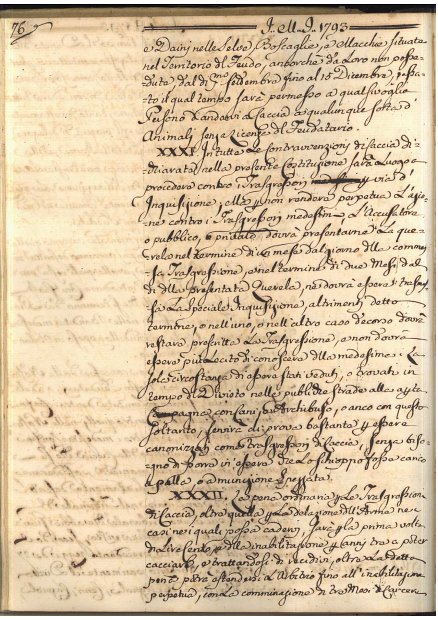 76
I. M. I. 1793
e Daini nelle Selve, Boscaglie, e Macchie situate
nel Territorio del Feudo, ancorche da Loro non posse-
dute, dal dì Settembre fino al 15 Dicembre, passa-
to il qual tempo sarà permesso a qualsivoglia
Persona d'andare a Caccia a qualunque sorta d'
Animali senza Licenza del Feudatario.
XXXI. In tutte le contravvenzioni di Caccia di-
chiarate nella presente Costituzione sarà Luogo a
procedere contro i Trasgressori e via d'
Inquisizione, e non rendere perpetua L'azio-
ne contro i Trasgressori medesimi L'Accusatore
o pubblico, o privato dovrà presentarne La que-
rela nel termine di mese dal giorno della commes-
sa Trasgressione, e nel termine di due Mesi dal
dì della presentata Querela, ne dovrà essere trasmes-
sa La Speciale Inquisizione, altrimenti detto
termine, o nell'uno, o nell'altro caso decorso dovrà
restare prescritta La Trasgressione, e non dovrà
essere più Lecito di conoscere della medesima: La
sola circostanza di essere stati veduti, o trovati in
tempo di Divieto nelle pubbliche strade alla aperta
Campagna con Cani, ed Archibuso, o anco con questo
soltanto, servirà di prova bastante per essere
canonizzati come trasgressori di Caccia, senza biso-
gno di porre in essere che Lo schioppo fosse carico
a palla, o a munizione spezzata.
XXXII. La pena ordinaria per le Trasgressioni
di Caccia, oltre quella per La delazione dell'Arme ne
casi nei quali possa cadere, sarà per la prima volta
di Lire Cento, e della inabilitazione per anni tre a poter
cacciare, e trattandosi di recidivi, oltre La detta
pena potrà estendersi L'Arbitrio fino all'inabilitazione
perpetua, con La comminazione di tre Mesi di Carcere